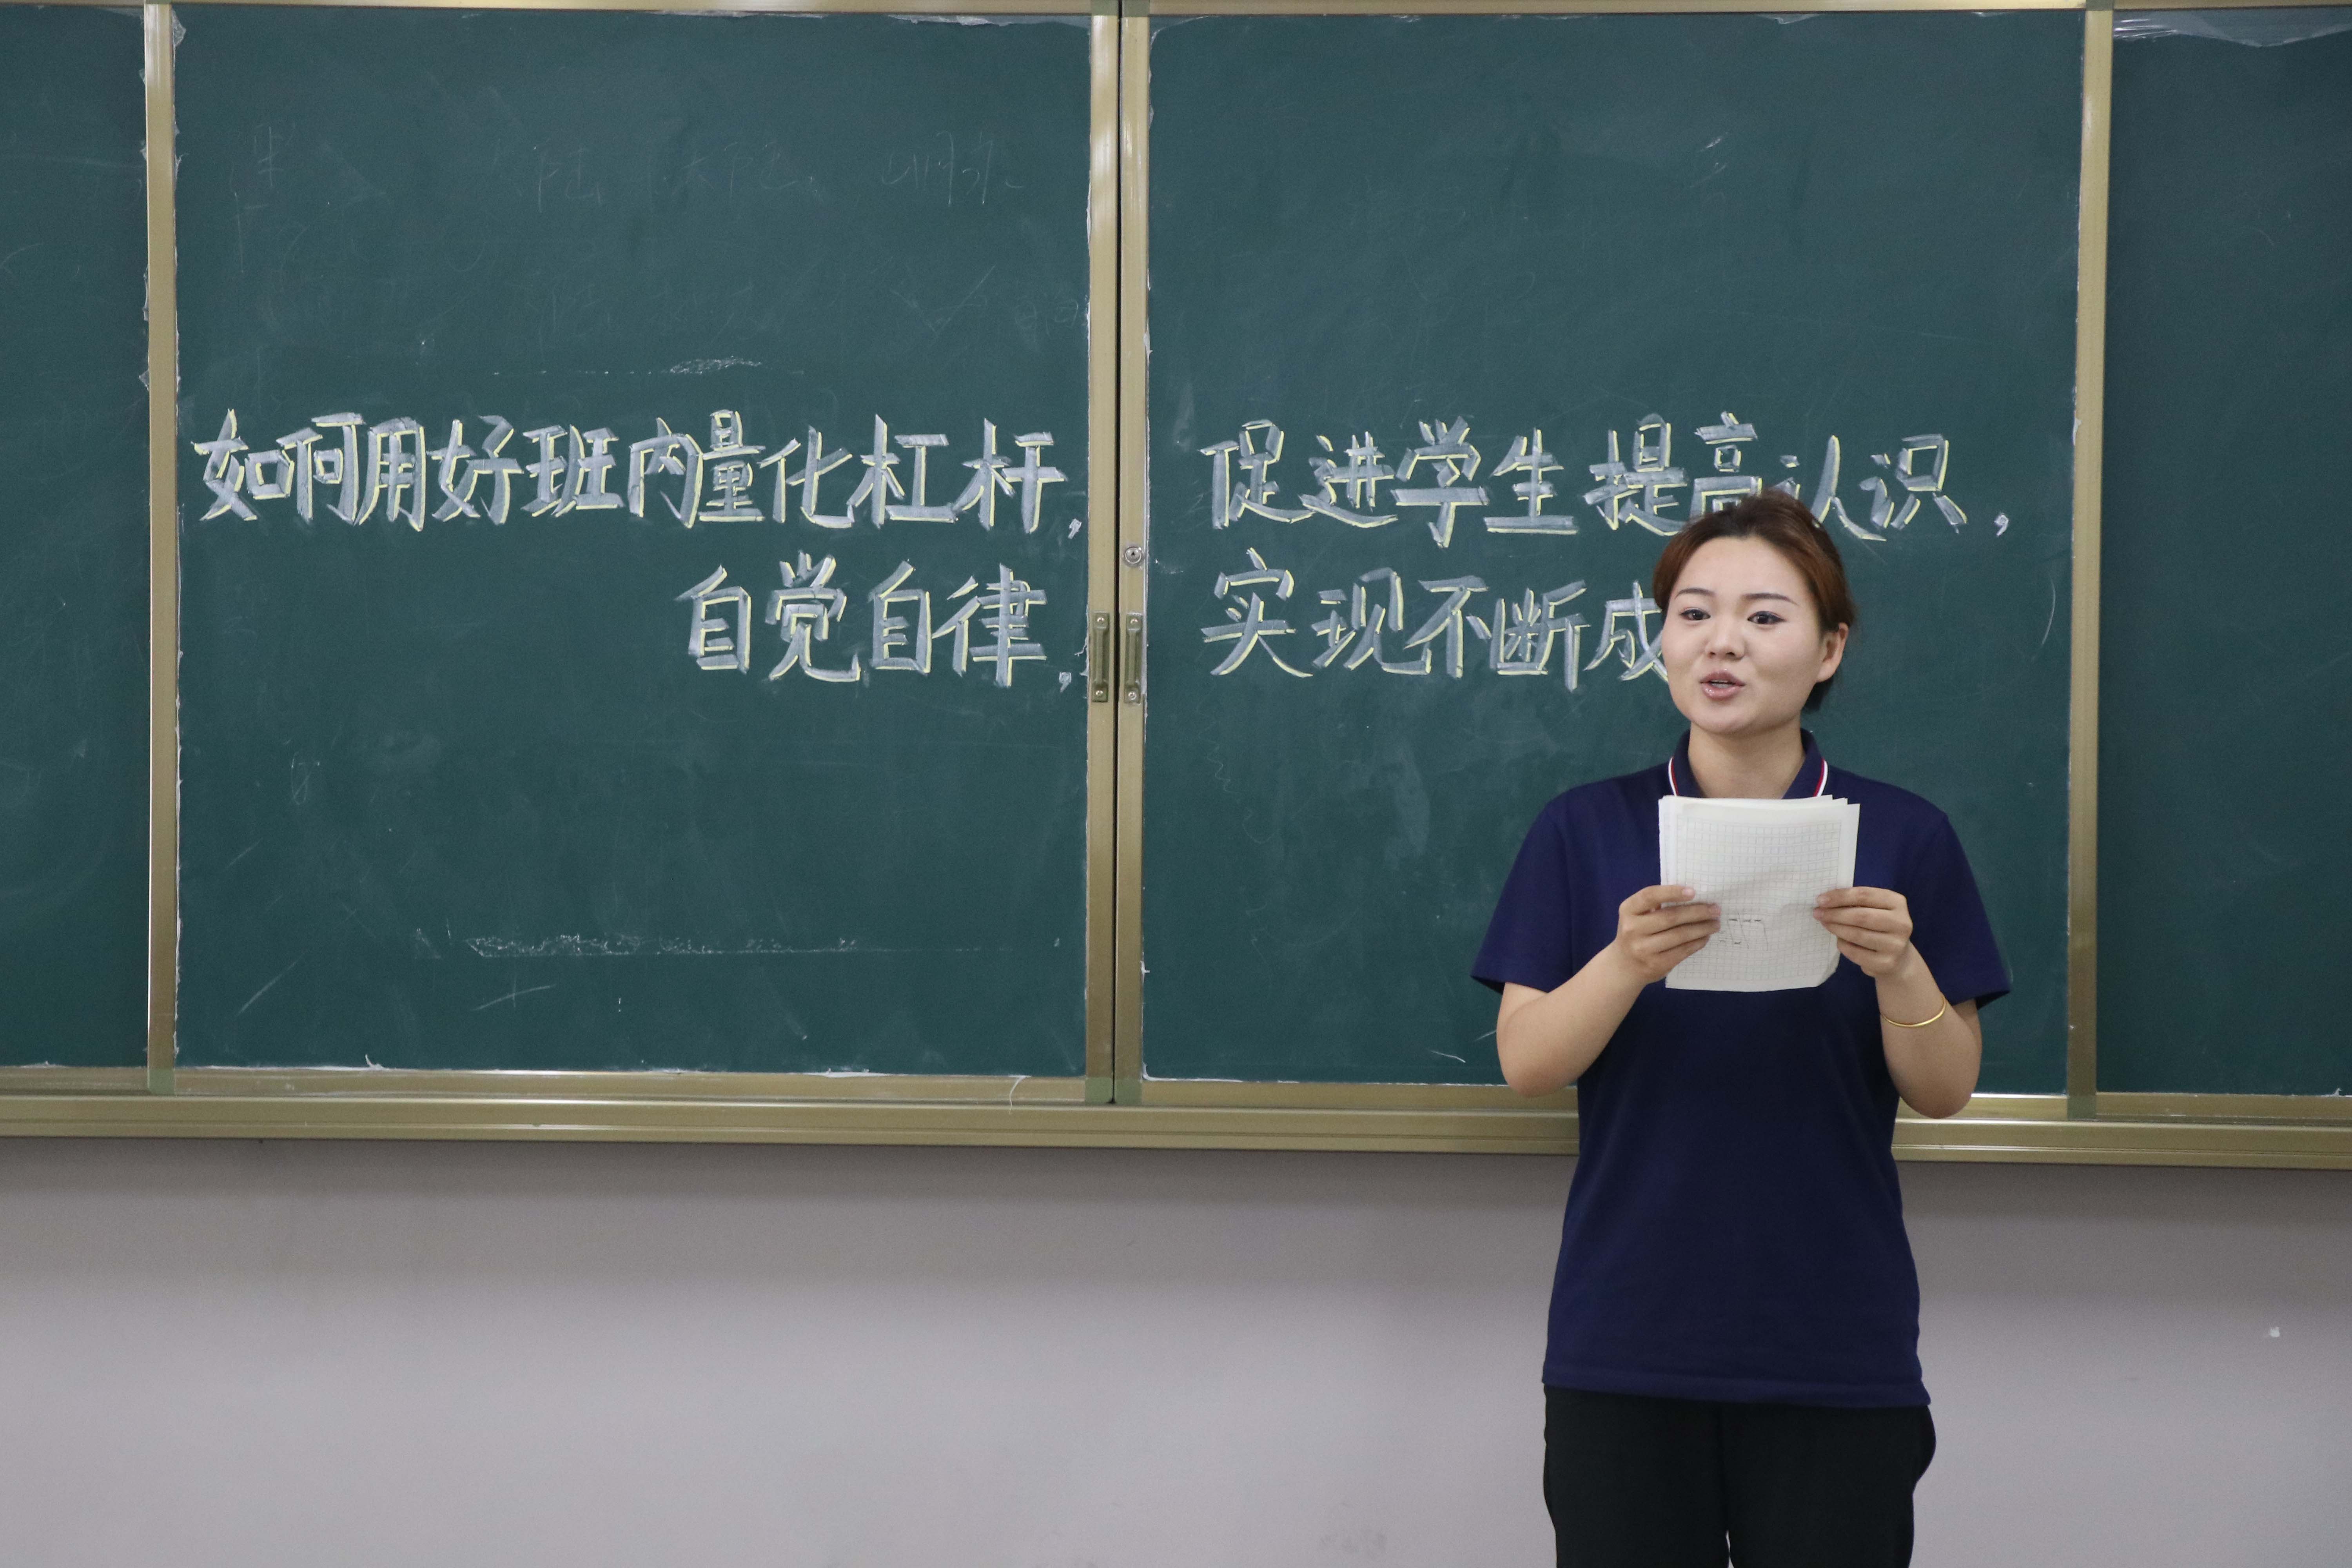 如何用好班内量化杠杆，促进学生提高认识，
自觉自律，实现不断成